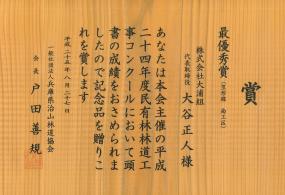 賞
最優秀賞
株式会社大浦組
代表取締役 大谷正人様
あなたは本会主催の平成
二十四年度民有林林道工
事コンクールにおいて頭
書の成績をおさめられま
したので記念品を贈りこ
れを賞します
平成二十五年八月二十七日
一般社団法人兵庫県治山林道協会
会長 戸田善規